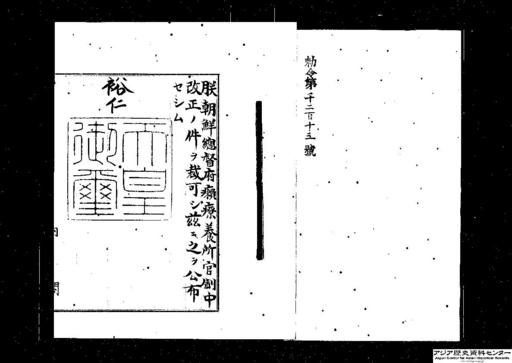 勅令第千二百十三號
朕朝鮮總督府癩療養所官制中
改正ノ件ヲ裁可シ茲ニ之ヲ公布
セシム
裕仁
天皇
御璽
アジア歴史資料センター
Japan Center for Asian Historical Records